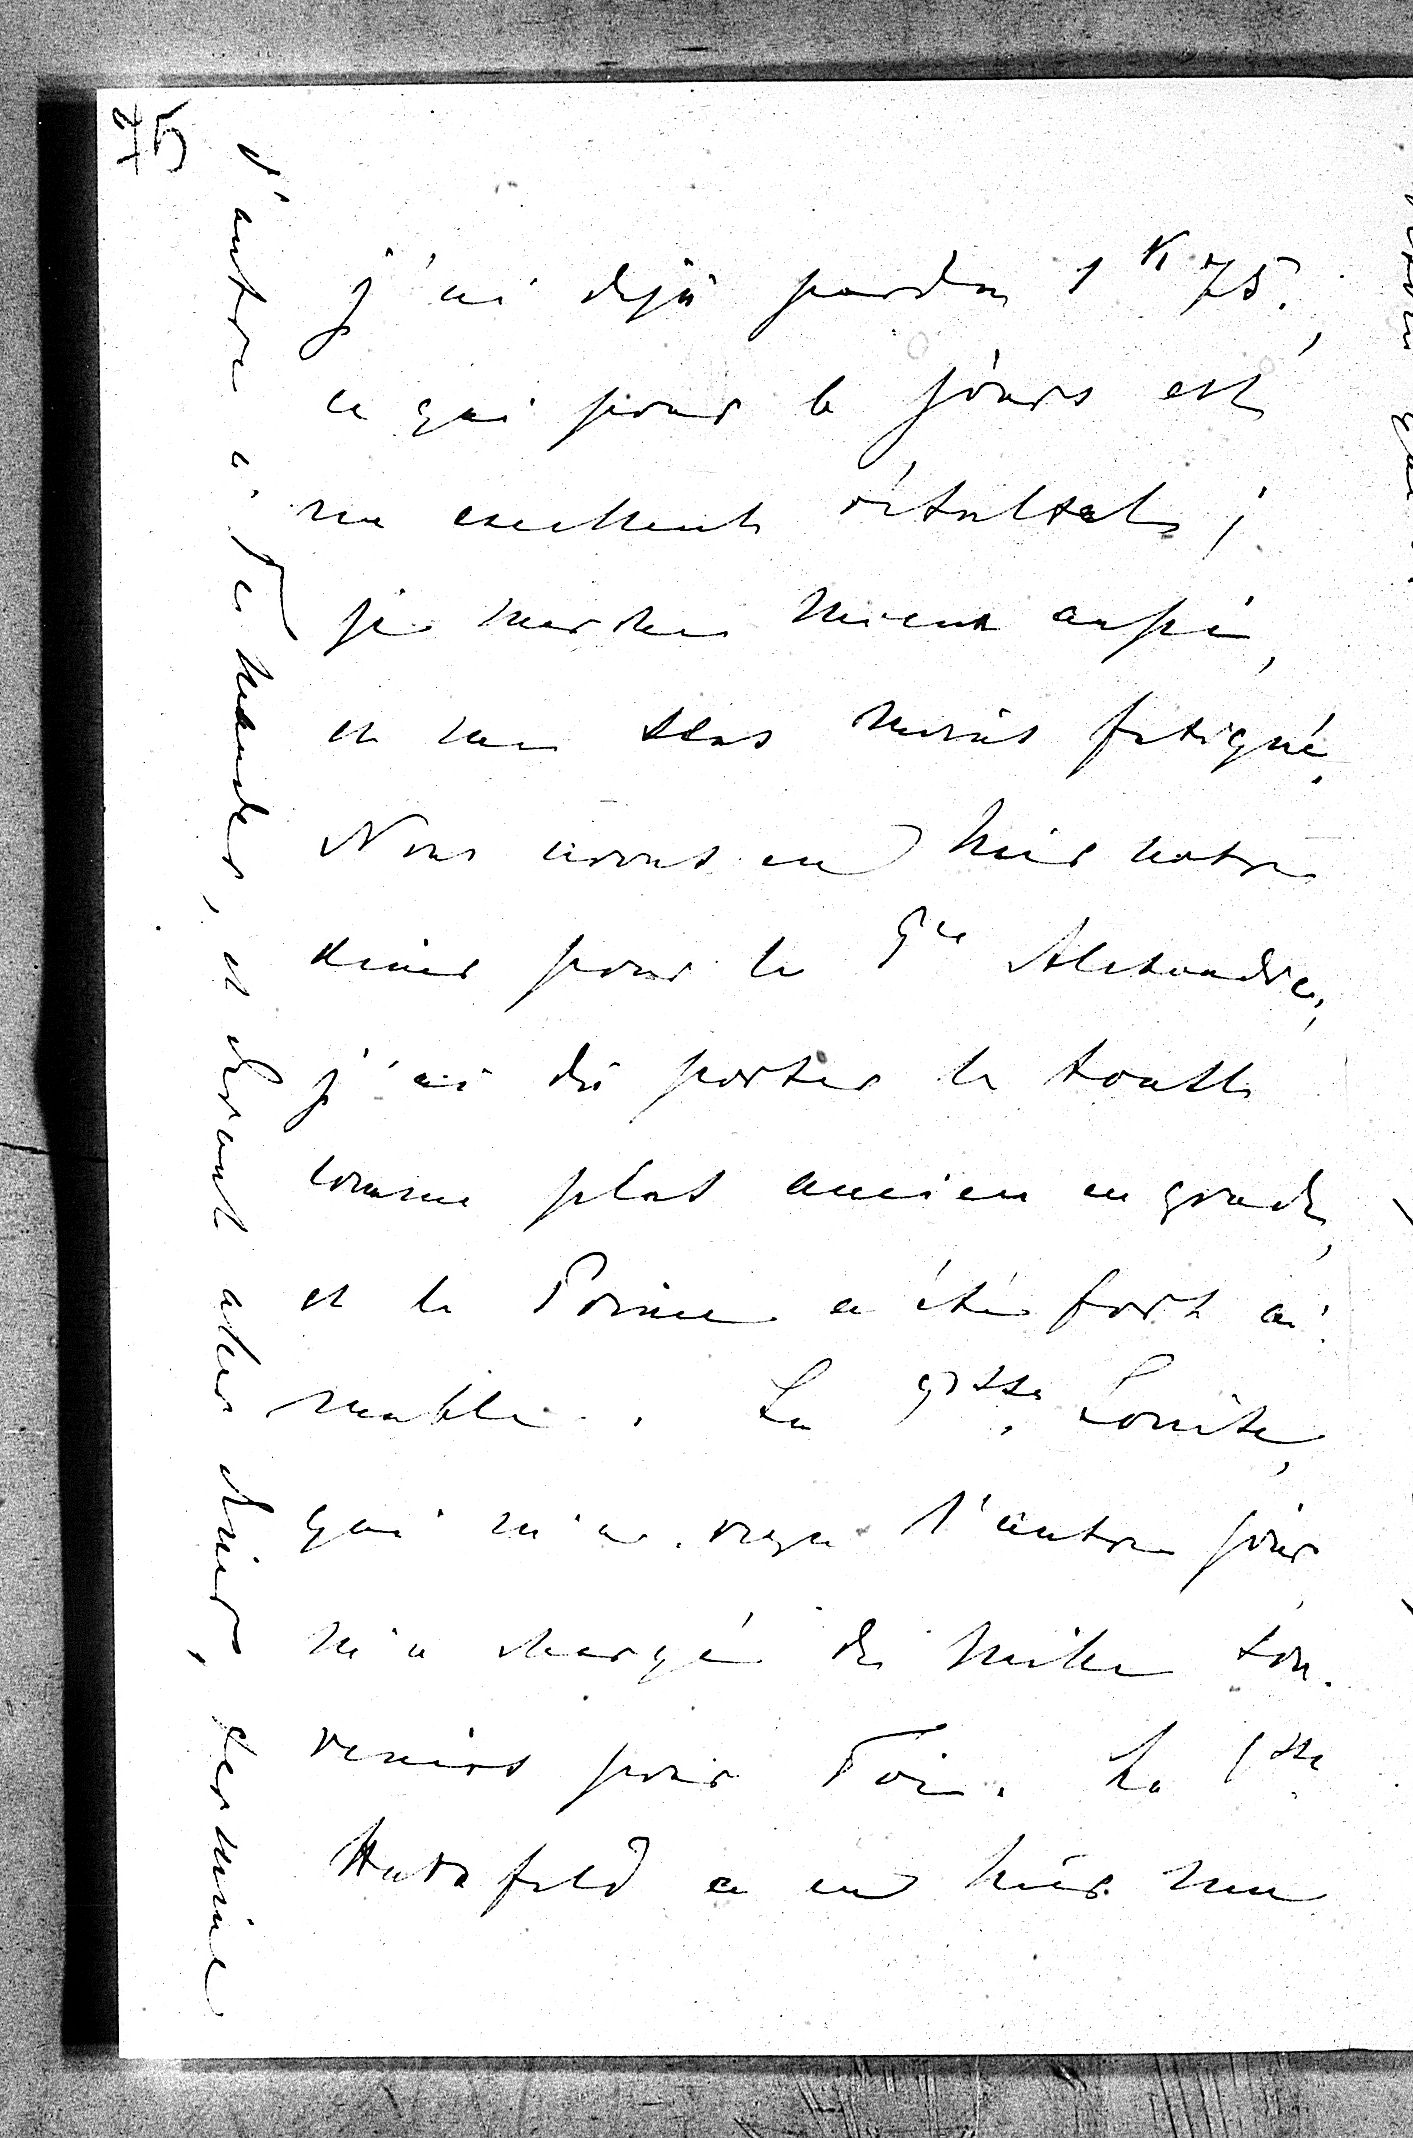 75
j'ai déjà perdu 1 K 75.,
ce qui pour 6 jours est
un excellent résultat ;
je marche mieux aussi,
et me sens moins fatigué.
Nous avons eu hier notre
diner pour le Pce Alexandre,
j'ai dû porter le toast
comme plus ancien en grade,
et le Prince a été fort ai-
mable. La Psse. Louise,
qui m'a reçu l'autre jour
m'a chargé de mille sou-
venirs pour Toi. La Psse
Hatzfeld a eu hier une
d'autre à Te mander, et devant aller diner, termine